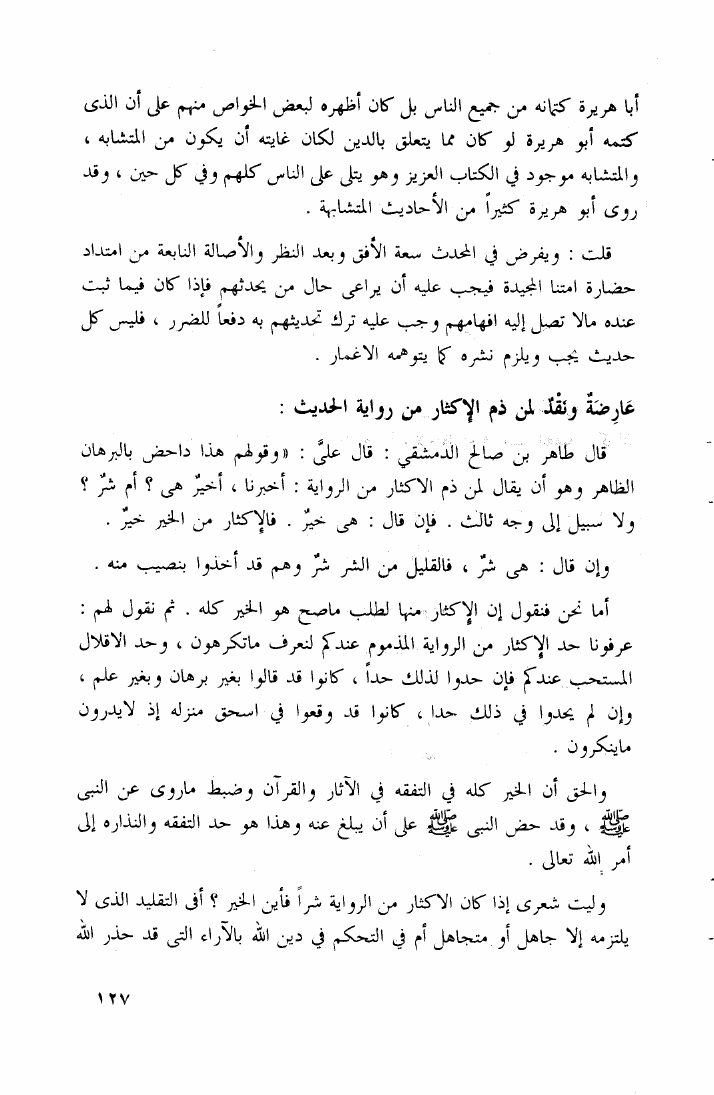 أبا هريرة كتمانه من جميع الناس بل كان أظهره لبعض الخواص منهم على أن الذى
كتمه أبو هريرة لو كان مما يتعلق بالدين لكان غايته أن يكون من المتشابه ،
والمتشابه موجود في الكتاب العزيز وهو يتلى على الناس كلهم وفي كل حين ، وقد
روى أبو هريرة كثيراً من الأحاديث المتشابهة .
قلت : ويفرض في المحدث سعة الأفق وبعد النظر والأصالة النابعة من امتداد
حضارة امتنا المجيدة فيجب عليه أن يراعى حال من يحدثهم فإذا كان فيما ثبت
عنده مالا تصل إليه افهامهم وجب عليه ترك تحديثهم به دفعاً للضرر ، فليس كل
حديث يجب ويلزم نشره كما يتوهمه الاغمار .
عَارِضَةٌ ونَقْدٌ لمن ذم الإكثار من رواية الحديث :
قال طاهر بن صالح الدمشقي : قال علىّ : «وقولهم هذا داحض بالبرهان
الظاهر وهو أن يقال لمن ذم الاكثار من الرواية : أخبرنا ، أخيرٌ هى ؟ أم شرٌ ؟
ولا سبيل إلى وجه ثالث . فإن قال : هى خيرٌ . فالإكثار من الخير خيرٌ .
وإن قال : هى شرٌ ، فالقليل من الشر شرٌ وهم قد أخذوا بنصيب منه .
أما نحن فنقول إن الإكثار منها لطلب ماصح هو الخير كله . ثم نقول لهم :
عرفونا حد الإكثار من الرواية المذموم عندكم لنعرف ماتكرهون ، وحد الاقلال
المستحب عندكم فإن حدوا لذلك حداً ، كانوا قد قالوا بغير برهان وبغير علم ،
وإن لم يحدوا في ذلك حدا ، كانوا قد وقعوا في اسحق منزله إذ لايدرون
ماينكرون .
والحق أن الخير كله في التفقه في الآثار والقرآن وضبط ماروى عن النبى
ﷺ ، وقد حض النبى ﷺ على أن يبلغ عنه وهذا هو حد التفقه والنذاره إلى
أمر الله تعالى .
وليت شعرى إذا كان الاكثار من الرواية شراً فأين الخير ؟ أفى التقليد الذى لا
يلتزمه إلا جاهل أو متجاهل أم في التحكم في دين الله بالآراء التى قد حذر الله
١٢٧